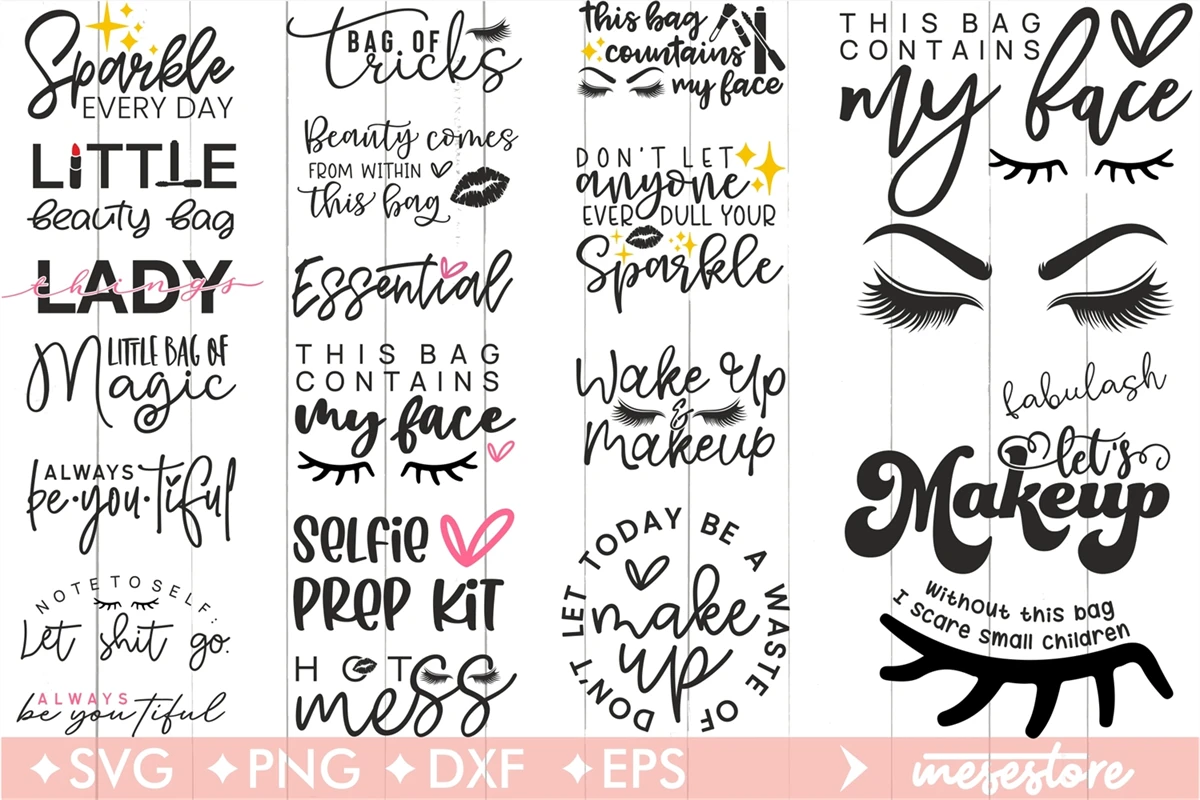 Sparkle
EVERY DAY
LITTLE
beauty bag
LADY
things
LITTLE BAG OF
Magic
ALWAYS
be•you•tiful
NOTE TO SELF..
Let shit go.
ALWAYS
be you tiful
BAG OF
tricks
Beauty comes
FROM WITHIN
this bag
Essential
THIS BAG
CONTAINS
my face
SELFIE
PREP KIT
HOT
mess
this bag
countains
my face
DON'T LET
anyone
EVER DULL YOUR
Sparkle
Wake Up
&
Makeup
DON'T LET TODAY BE A WASTE OF
make
up
THIS BAG
CONTAINS
my face
fabulash
let's
Makeup
Without this bag
I scare small children
SVG PNG DXF EPS
mesestore